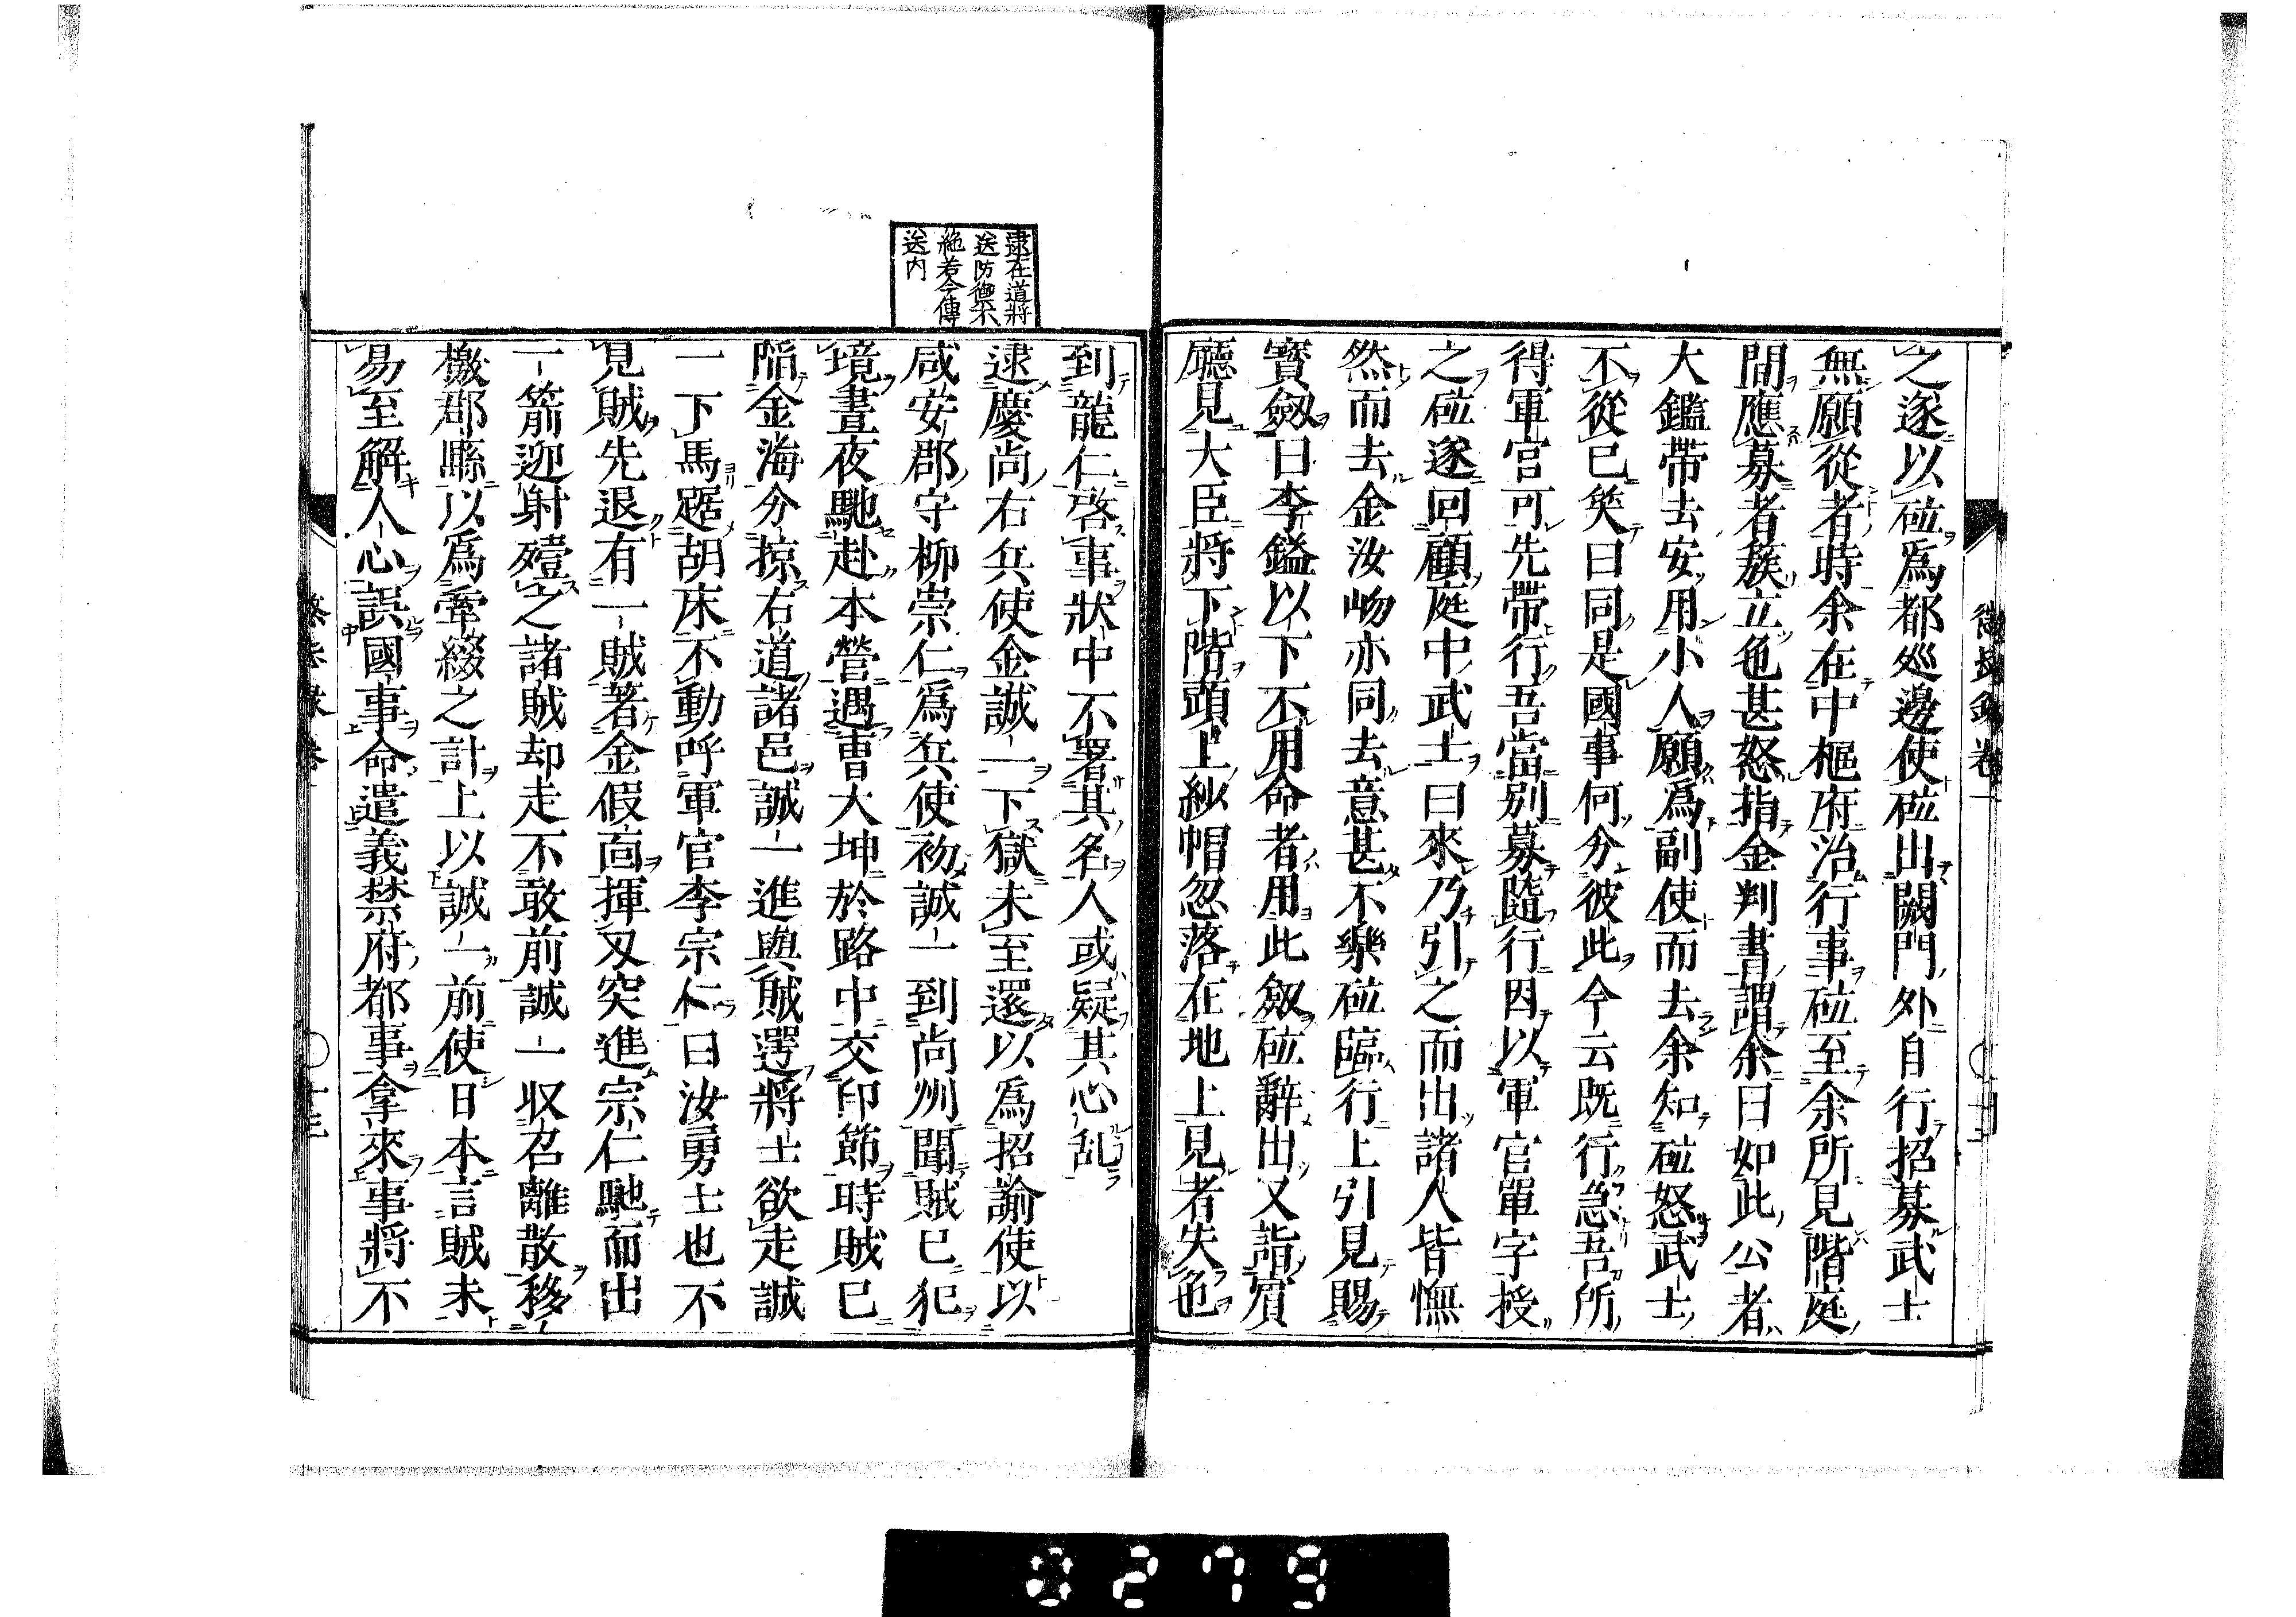 懲毖録卷一
之遂以砬爲都巡邊使砬出闕門外自行招募武士
無願從者時余在中樞府治行事砬至余所見階庭
間應募者簇立色甚怒指金判書謂余曰如此公者
大鑑帶去安用小人願爲副使而去余知砬怒武士
不從已笑曰同是國事何分彼此今云既行急吾所
得軍官可先帶行吾當別募隨行因以軍官單字授
之砬遂回顧庭中武士曰來乃引之而出諸人皆憮
然而去金汝岉亦同去意甚不樂砬臨行上引見賜
寳劔曰李鎰以下不用命者用此劔砬辭出又詣賓
廳見大臣將下階頭上紗帽忽落在地上見者失色
到龍仁啓事狀中不署其名人或疑其心乱
逮慶尚右兵使金誠一下獄未至還以爲招諭使以
咸安郡守柳崇仁爲兵使初誠一到尚州聞賊已犯
境晝夜馳赴本營遇曹大坤於路中交印節時賊已
陥金海分掠右道諸邑誠一進與賊遌將士欲走誠
一下馬踞胡床不動呼軍官李宗仁曰汝勇士也不
見賊先退有一賊著金假面揮刃突進宗仁馳而出
一箭迎射殪之諸賊却走不敢前誠一収召離散移
檄郡縣以爲牽綴之計上以誠一前使日本言賊未
易至解人心誤國事命遣義禁府都事拿來事將不
逮在道將
送防禦不
絶若今傳
送内
0279